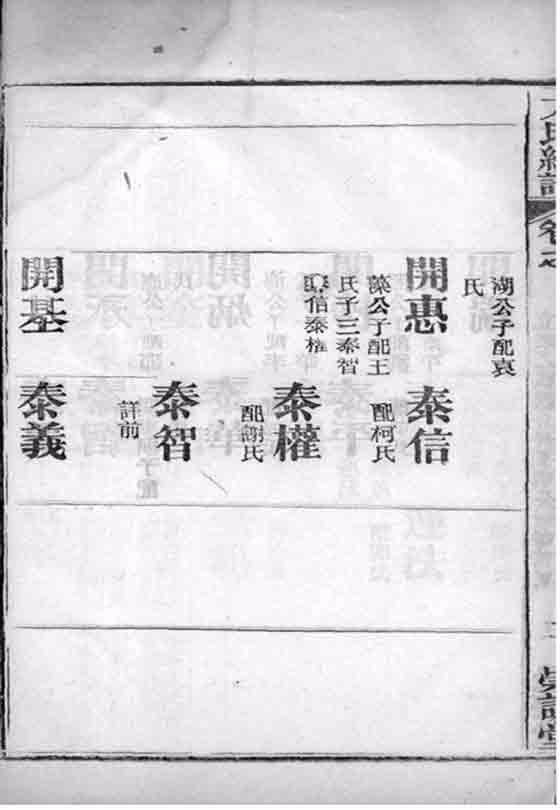 湖公子配袁
氏
開惠
藻公子配王
氏子三泰智
泰信泰權
開基
泰信
配柯氏
泰權
配謝氏
泰智
詳前
泰義